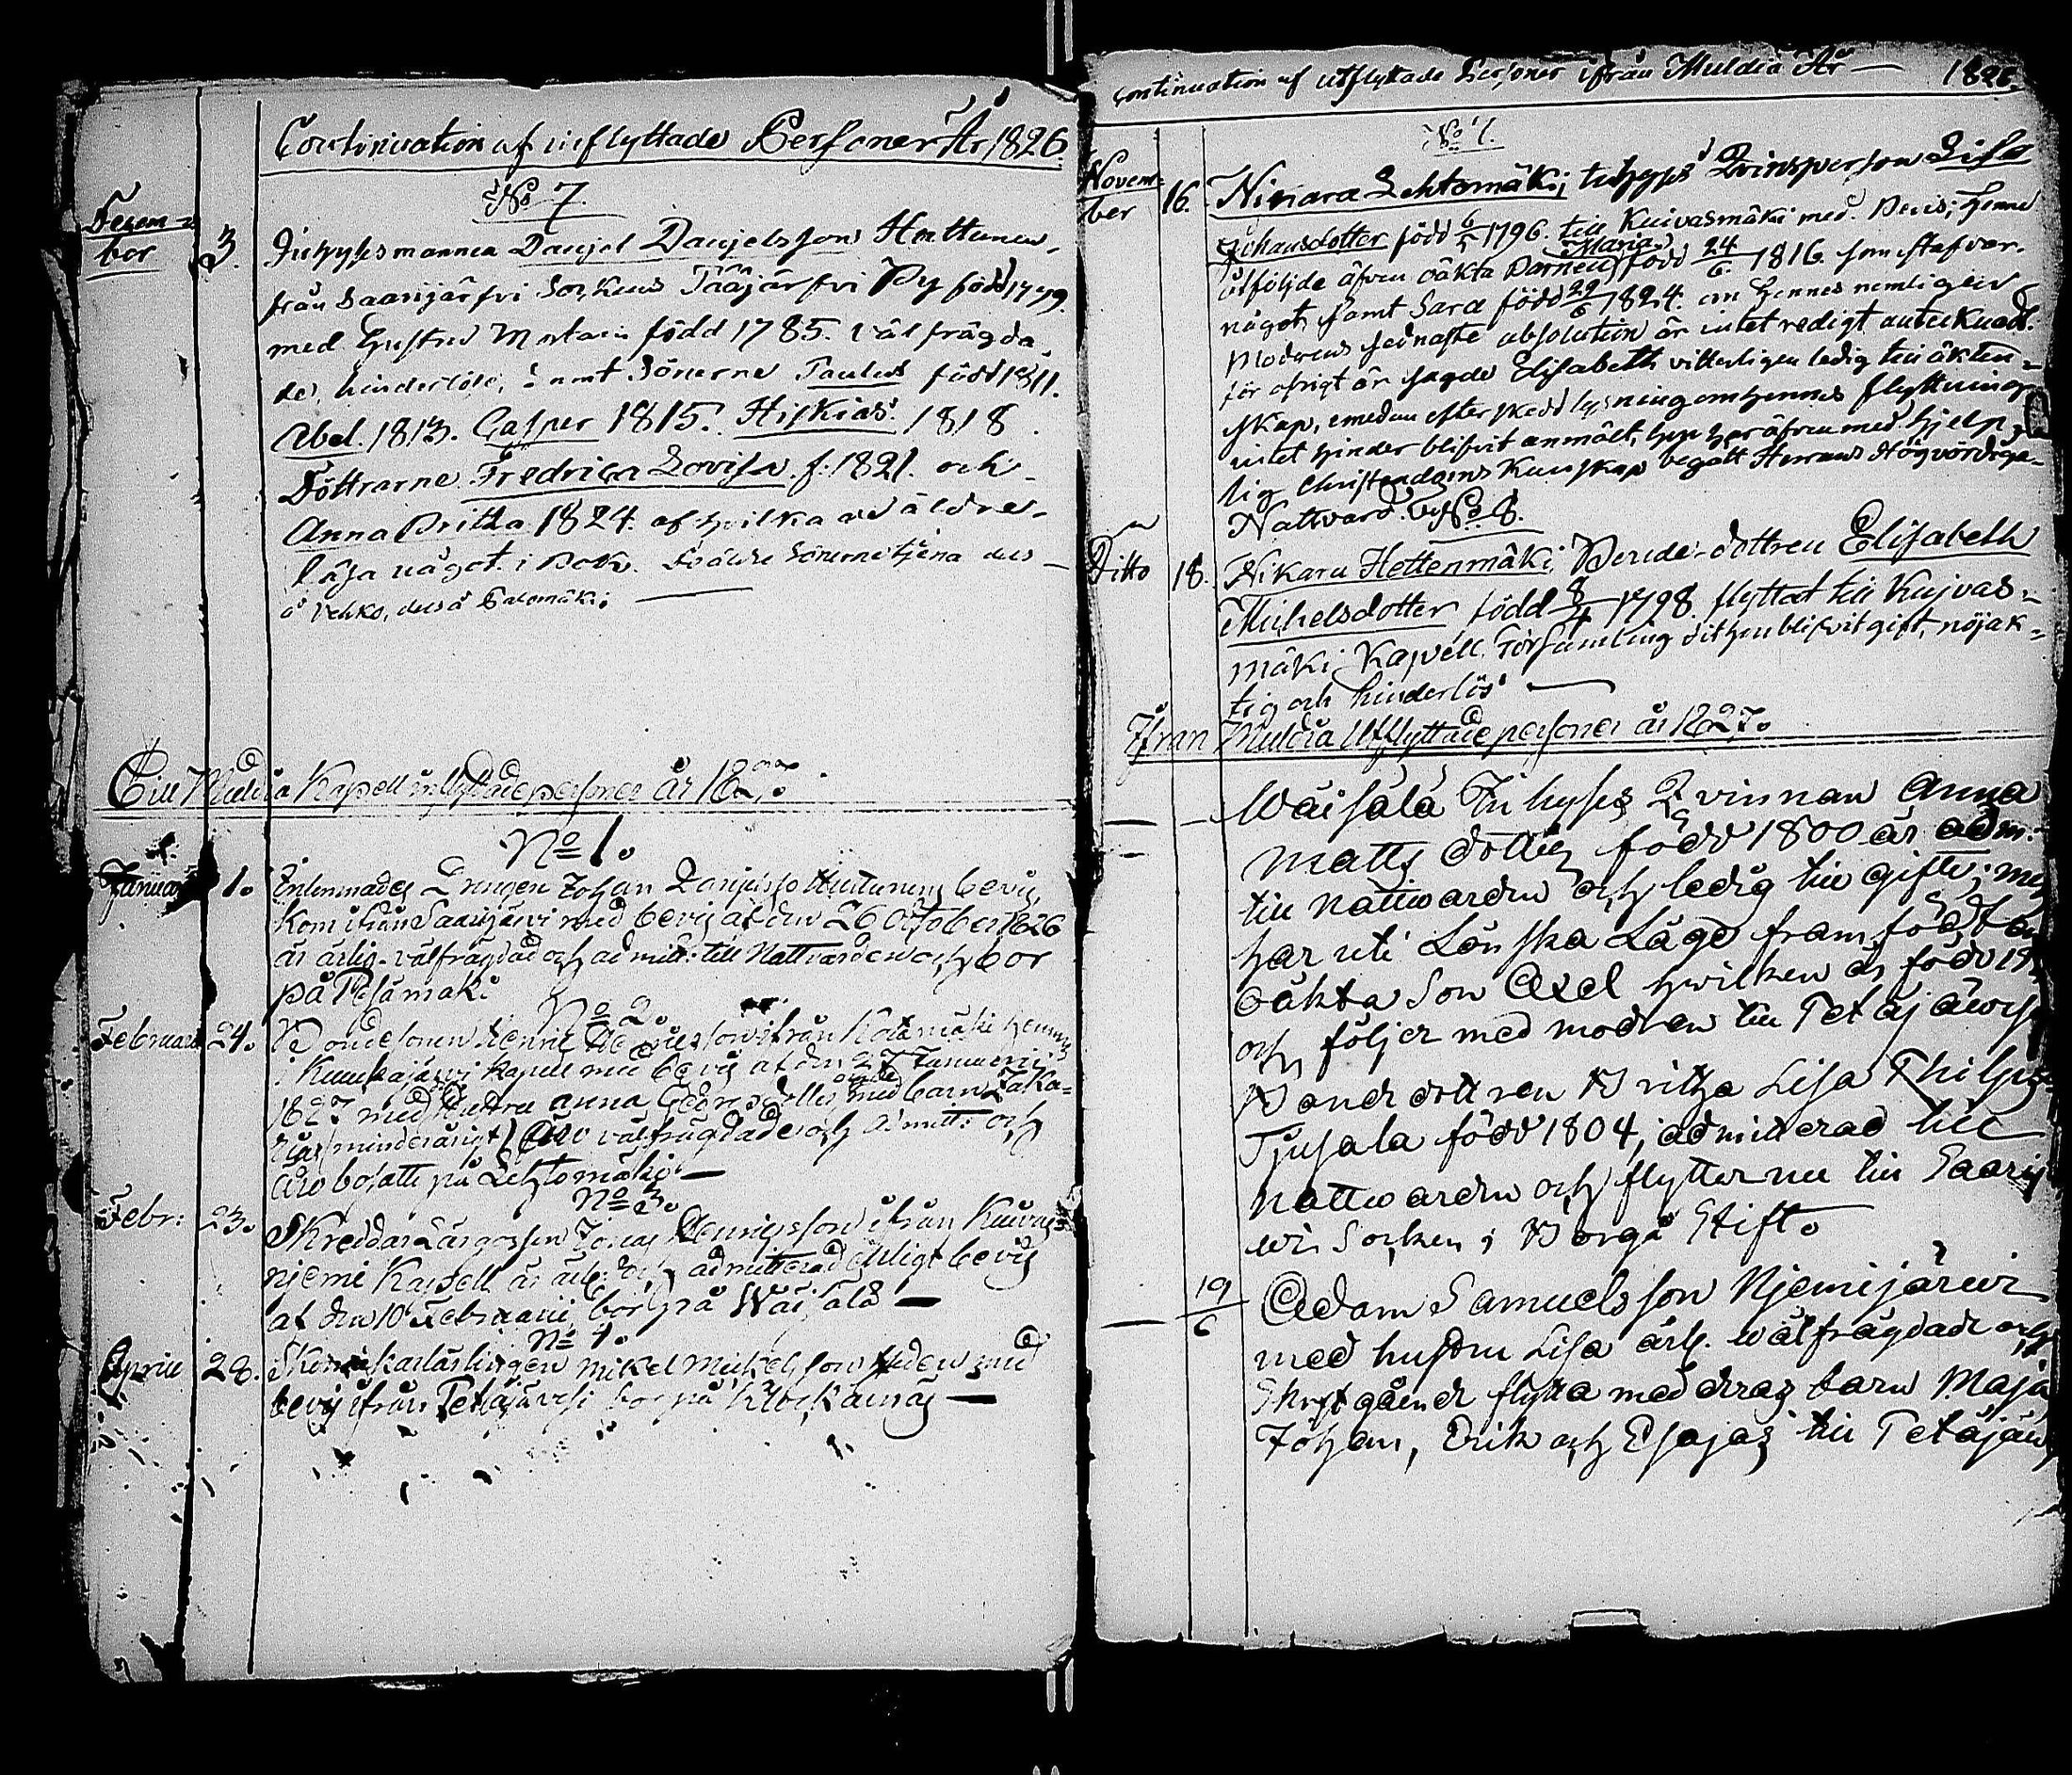 Continuation af inflyttade Personer År 1826.
No 7.
Decem-
ber 3. Inhysesmannen Danjel Danjelsson Hottunen
från Saarijärfvi Sockens Pääjärfvi By född 1779.
med Hustru Maria född 1785. väl frägda
de, hinderlöse, samt Sönerne Paulus född 1811.
Abel. 1813. Casper 1815. Hiskias. 1818.
Döttrarne Fredrica Lovisa f. 1821. och
Anna Britha 1824. af hvilka de äldre
läsa något i Bok. Sönerne tjena den
å Vehko, den å Salomäki
Till Muldia Kapell inflyttade personer år 1827.
No 1.
Januari 1. Drengen Johan Danjelsso Huttunens bevis,
kom ifrån Saarijärvi med bevis af den 26 October 1826
är ärlig- välfrägdad och admitt: till Nattvarden och bor
på
No 2.
Februari 24. Bondesonen Henric ifrån
i kapell med bevis af den 27 Januarii
1827 med Hustru Anna med barn Zaka-
rias (minderårigt) äro välfrägdade och admitt: och
äro bosatte på Lehtomäki —
No 3.
Febr: 23. Skreddar Lärgossen Jonas Henricsson ifrån Kuivas-
njemi Kapell är ärl: och admitterad enligt bevis
af den 10 Februarii, bor på Wäisälä —
No 4.
Aprill 28. Mikel Mickelsson med
bevis ifrån Petäjävesi bor på Klockarnäs —
Continuation af utflyttade Personer ifrån Muldia År — 1826.
No 7.
Novem-
ber 16. Niniara Lehtomäki, inhyses Qvinsperson Lisa
Johansdotter född 6/5 1796. till Kuivasmäki med Bevis; Henne
åtföljde äfven oäkta Barnen Maria född 24/6. 1816. som stafvar
något, samt Sara född 29/6 1824. om hennes nemligen
Modrens sednaste absolution är intet redigt antecknadt.
för öfrigt är sagde Elisabeth vitterligen ledig till äkten-
skap, emedan efter skedd lysning om hennes flyttning
intet hinder blifvit anmält, hon har äfven med hjelp-
lig Christendoms Kunskap begått Herrans Högvördiga
Nattvard. No 8.
Ditto 18. Nikara Hottenmäki, Bonde-dottren Elisabeth
Michelsdotter född 8/4 1798. flyttat till Kujvas-
mäki Kapell Församling dit hon blifvit gift, nöjak-
tig och hinderlös —
Ifrån Muldia Utflyttade personer år 1827.
— Wäisälä Inhyses Qvinnan Anna
Matts dotter född 1800 är adm:
till nattwarden och ledig till gifte; men
har uti Lönska Läge framfödt en
oäkta Son Axel hwilken är född
och följer med modren till Petäjäwesi
Bondedottren Britha Lisa
Tjusala född 1804, admitterad till
nattwarden och flytter nu till Saarij
wi Socken i Borgå Stift.
— 19/6 Adam Samuelsson Njemijärwi
med hustru Lisa ärl. wälfrägdade och
Skriftgående flytta med deras barn Maja
Johan, Erik och Esajas till Petäjäw